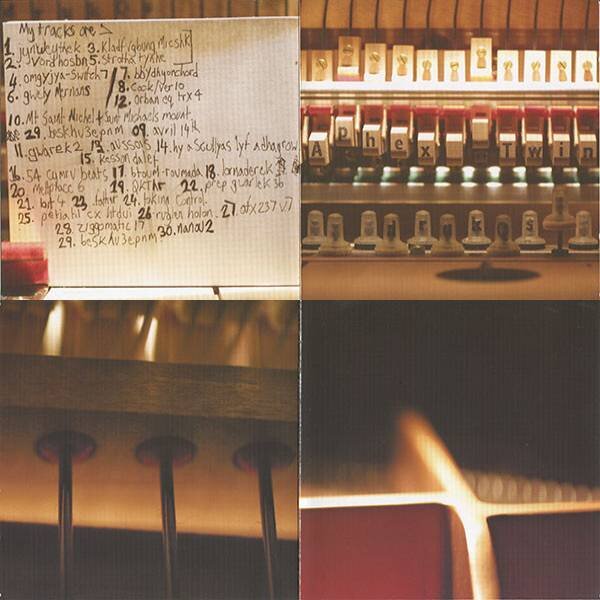 My tracks are
1. jynweythek 3. Kladfvgbung Micshk
2. Vordhosbn 5. strotha tynhe
4. omgyjya-switch7 7. bbydhyonchord
6. gwely Mernans 8. Cock/Ver10
12. Orban eq trx4
10. Mt Saint Michel + Saint Michaels mount
29. beskhu3epnm 09. avril 14th
11. gwarek2 13. aussois 14. hy a scullyas lyf adhagrow
15. kesson dalef
16. 54 cymru beats 17. btoum-roumada 18. lornaderek
20. Meltphace 6 19. QKThr 22. prep gwarlek 3b
21. bit 4 23. father 24. taking control
25. petiatil cx htdui 26. ruglen holon 27. afx237 v7
28. ziggomatic 17
29. beskhu3epnm 30. nanou2
Aphex Twin